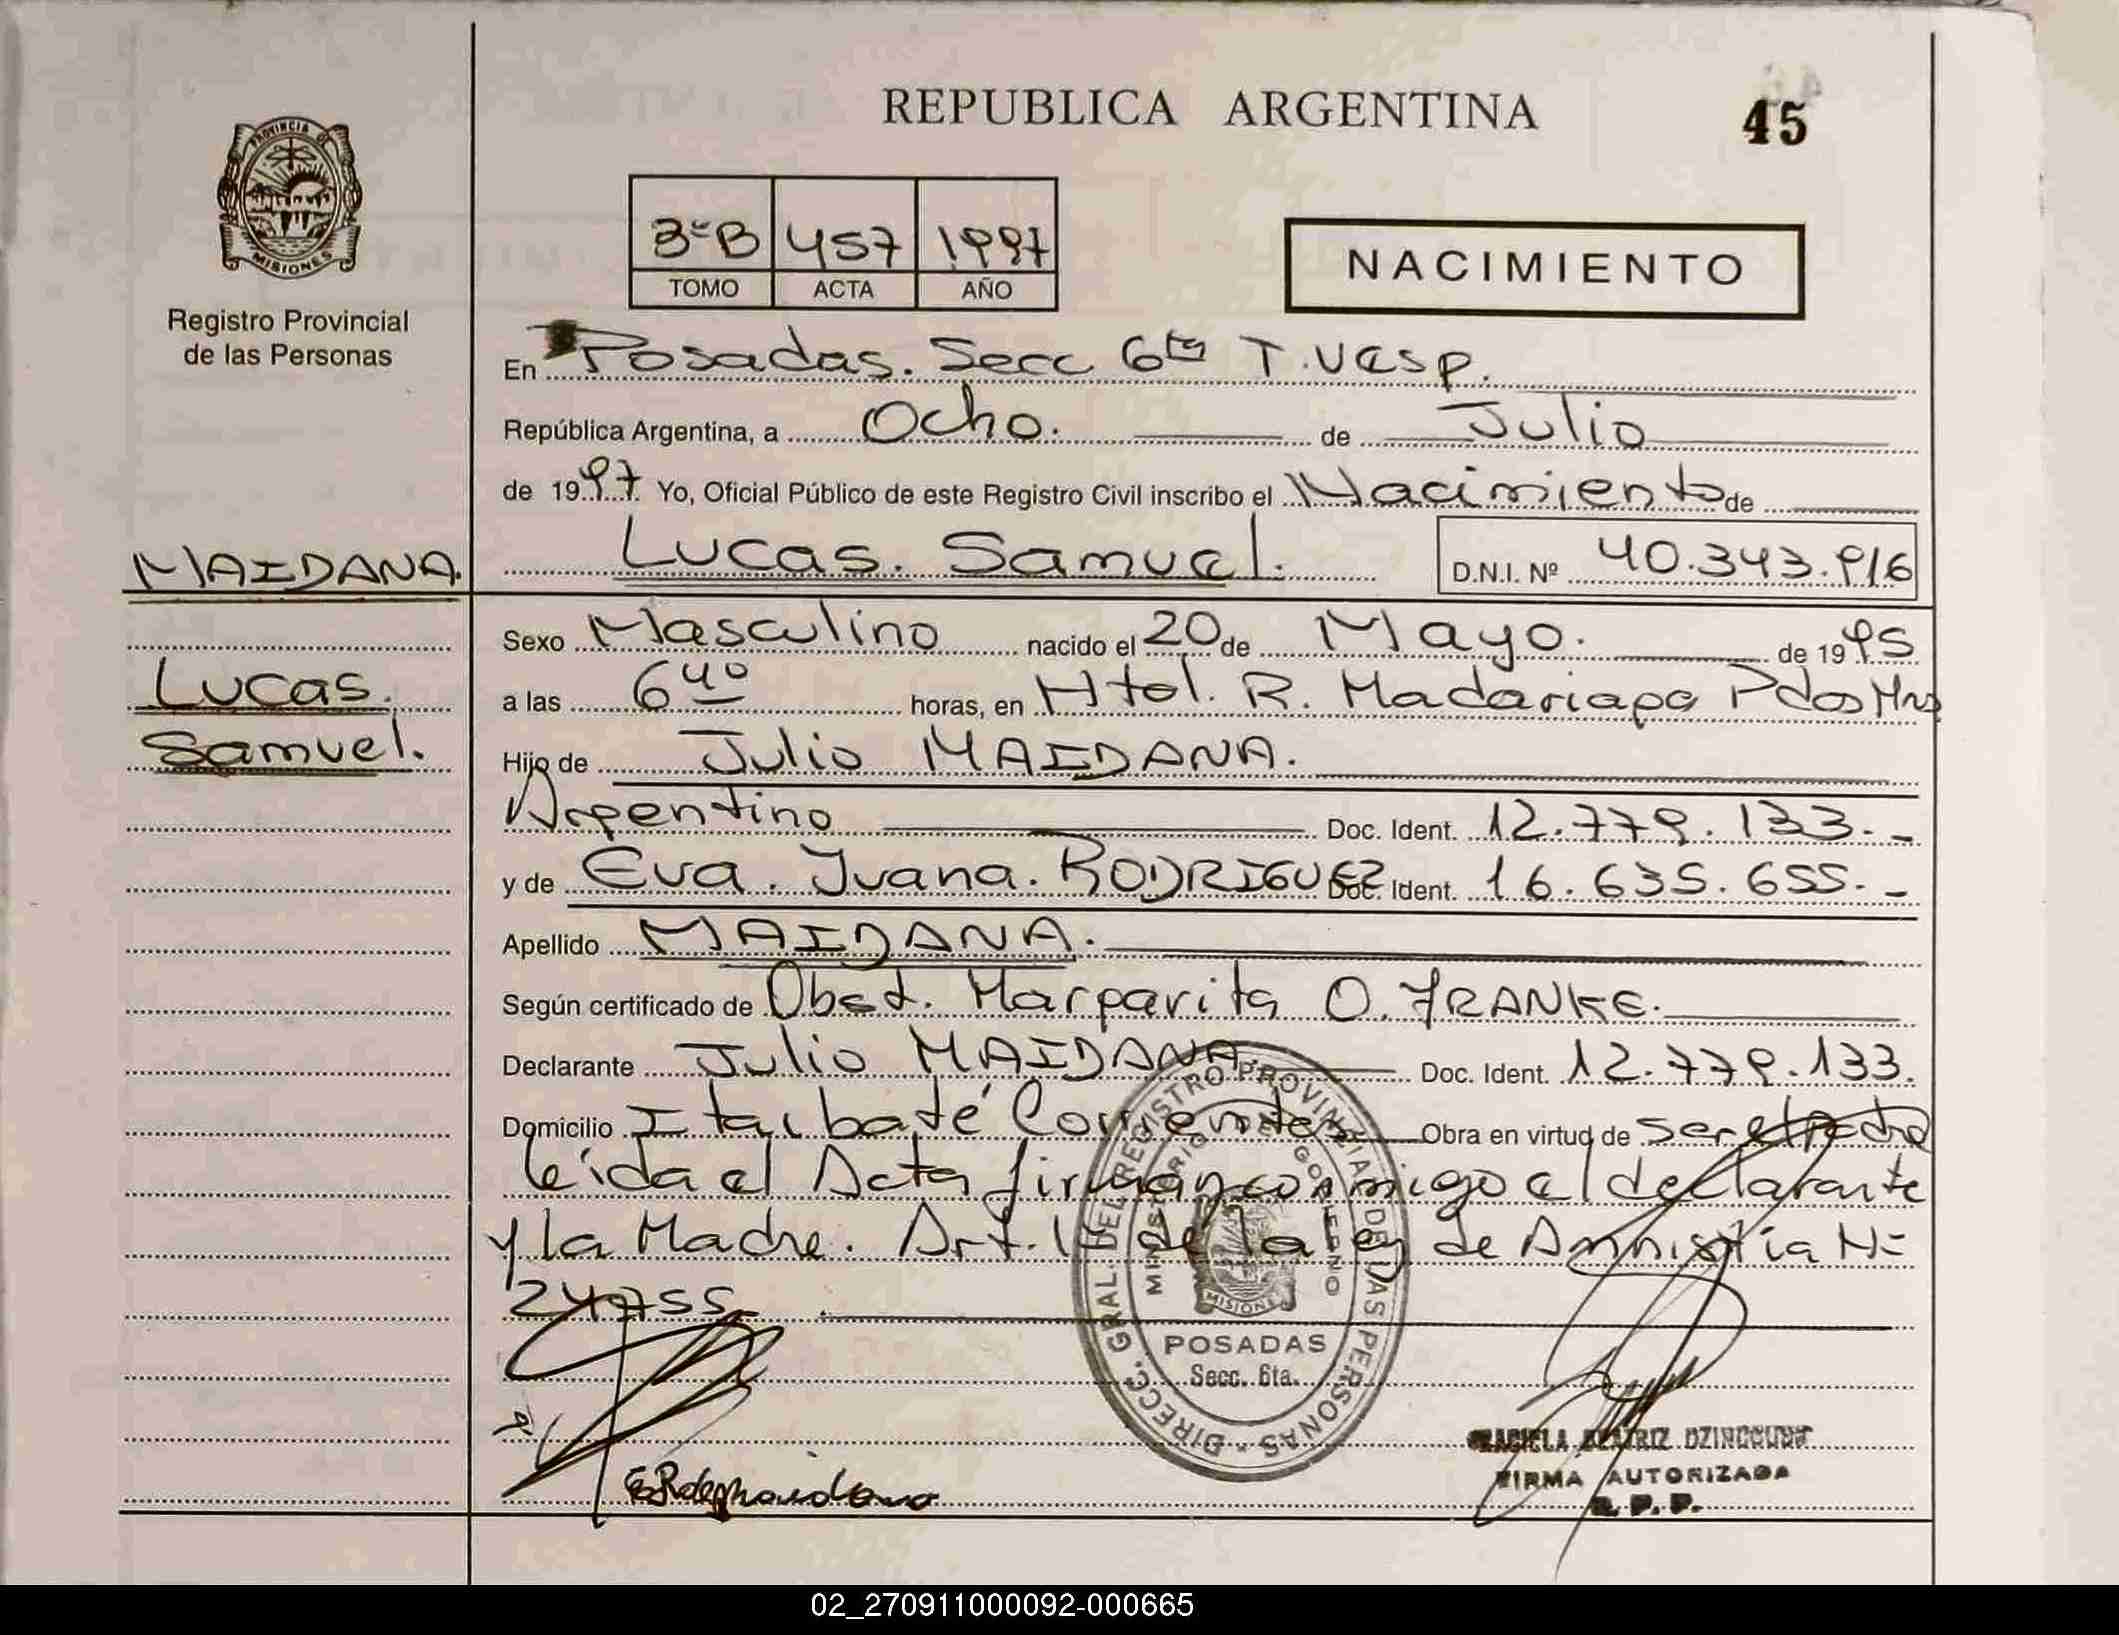 REPUBLICA ARGENTINA
45
PROVINCIA DE
MISIONES
Registro Provincial
de las Personas
3º B 457 1997
TOMO ACTA AÑO
NACIMIENTO
En Posadas. Secc 6ta T. Vesp.
República Argentina, a Ocho. de Julio
de 1997 Yo, Oficial Público de este Registro Civil inscribo el Nacimiento de
Lucas. Samuel. D.N.I. Nº 40.343.916
MAIDANA.
Lucas.
Samuel.
Sexo Masculino nacido el 20 de Mayo. de 1995
a las 6 40 horas, en Htal. R. Madariaga Pdas Mns
Hijo de Julio MAIDANA.
Argentino Doc. Ident. 12.779.133.-
y de Eva. Juana. RODRIGUEZ Doc. Ident. 16.635.655.-
Apellido MAIDANA.
Según certificado de Obst. Margarita O. FRANKE.
Declarante Julio MAIDANA Doc. Ident. 12.779.133.
Domicilio Itaibaté Corrientes Obra en virtud de ser el Padre
leída el Acta firman conmigo el declarante
y la Madre. Art. de la ley de Amnistía Nº
24755
DIRECC. GRAL. DEL REGISTRO PROVINCIAL DE LAS PERSONAS
MINISTERIO DE GOBIERNO
MISIONES
POSADAS
Secc. 6ta.
E R de Maidana
GRACIELA BEATRIZ
FIRMA AUTORIZADA
R. P. P.
02_270911000092-000665